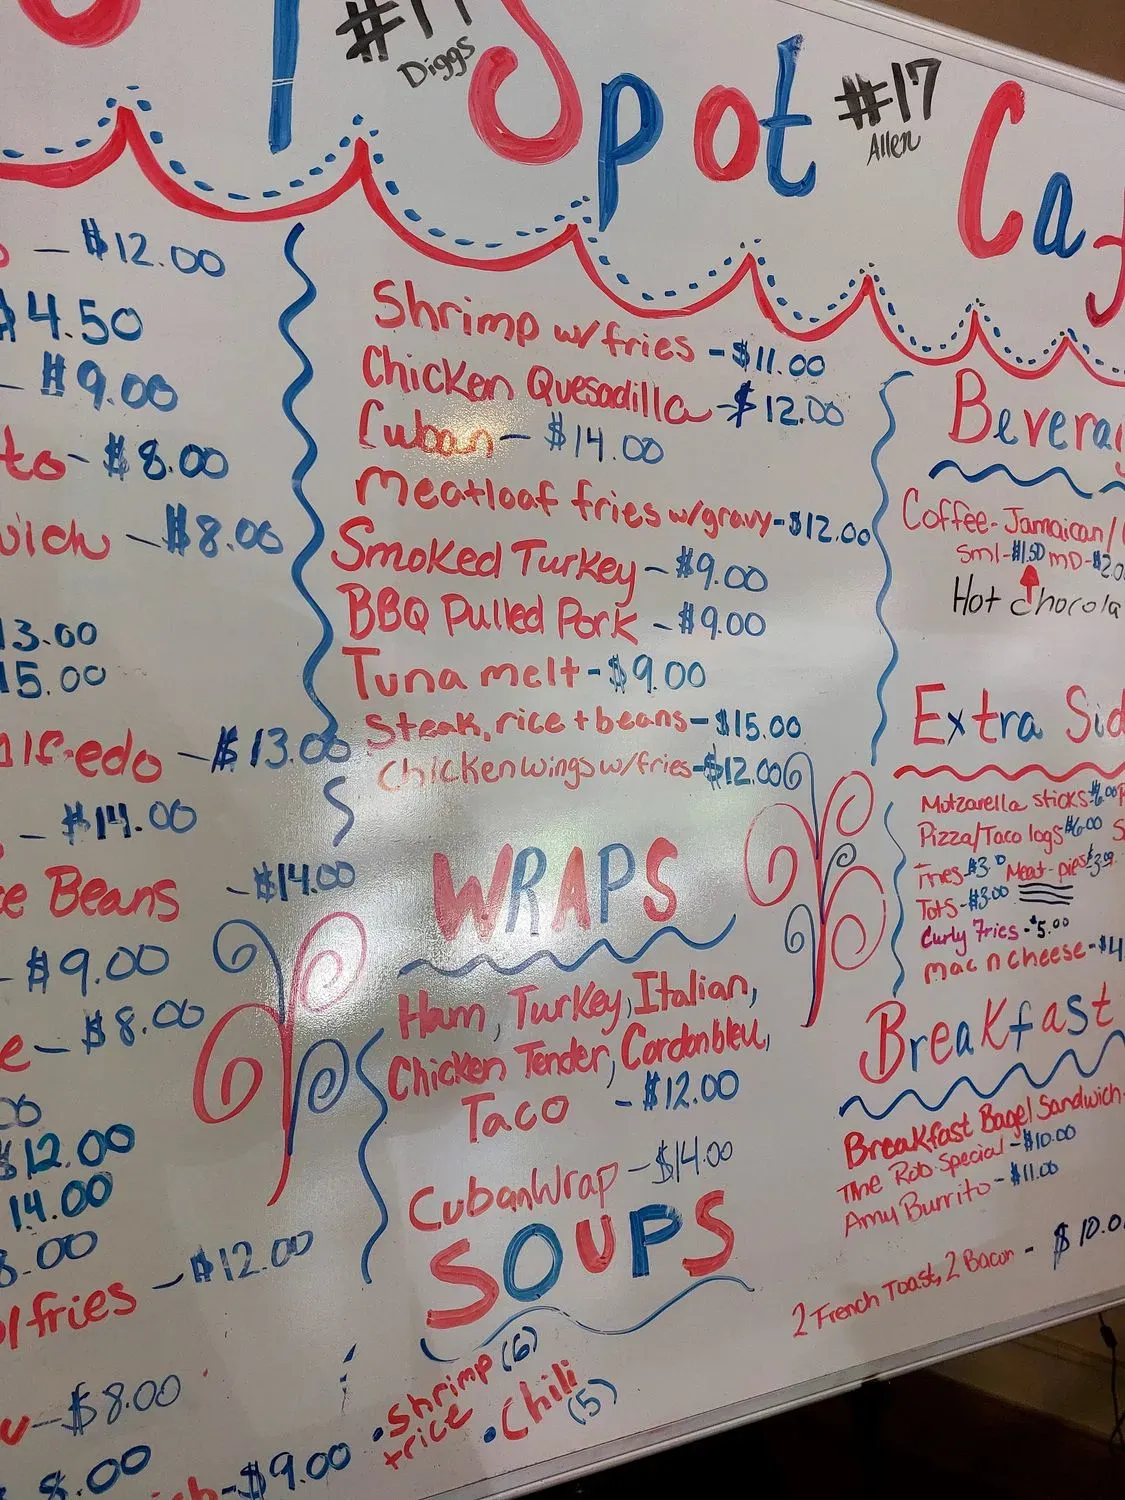 #17
Diggs
Spot
#17
Allen
Caf
- $12.00
$4.50
- $9.00
to- $8.00
wich - $8.00
13.00
15.00
Alfredo - $13.00
- $14.00
e Beans - $14.00
- $9.00
e - $8.00
00
$12.00
14.00
8.00
w/fries - $12.00
- $8.00
8.00
ch - $9.00
Shrimp w/fries - $11.00
Chicken Quesadilla - $12.00
Cuban - $14.00
Meatloaf fries w/gravy - $12.00
Smoked Turkey - $9.00
BBQ Pulled Pork - $9.00
Tuna melt - $9.00
Steak, rice + beans - $15.00
Chicken wings w/fries - $12.00
WRAPS
Ham, Turkey, Italian,
Chicken Tender, Cordonbleu,
Taco - $12.00
Cuban Wrap - $14.00
SOUPS
• Shrimp (6)
+ rice
• Chili
(5)
Beverag
Coffee - Jamaican/
Sml - $1.50 MD - $2.0
Hot Chocola
Extra Sid
Motzarella sticks $6.00
Pizza/Taco logs $6.00 S
Fries - $3.0 Meat-pies $3.00
Tots - $3.00
Curly Fries - $5.00
mac n cheese - $4
Breakfast
Breakfast Bagel Sandwich -
The Rob Special - $10.00
Amy Burrito - $11.00
2 French Toast, 2 Bacon - $10.0